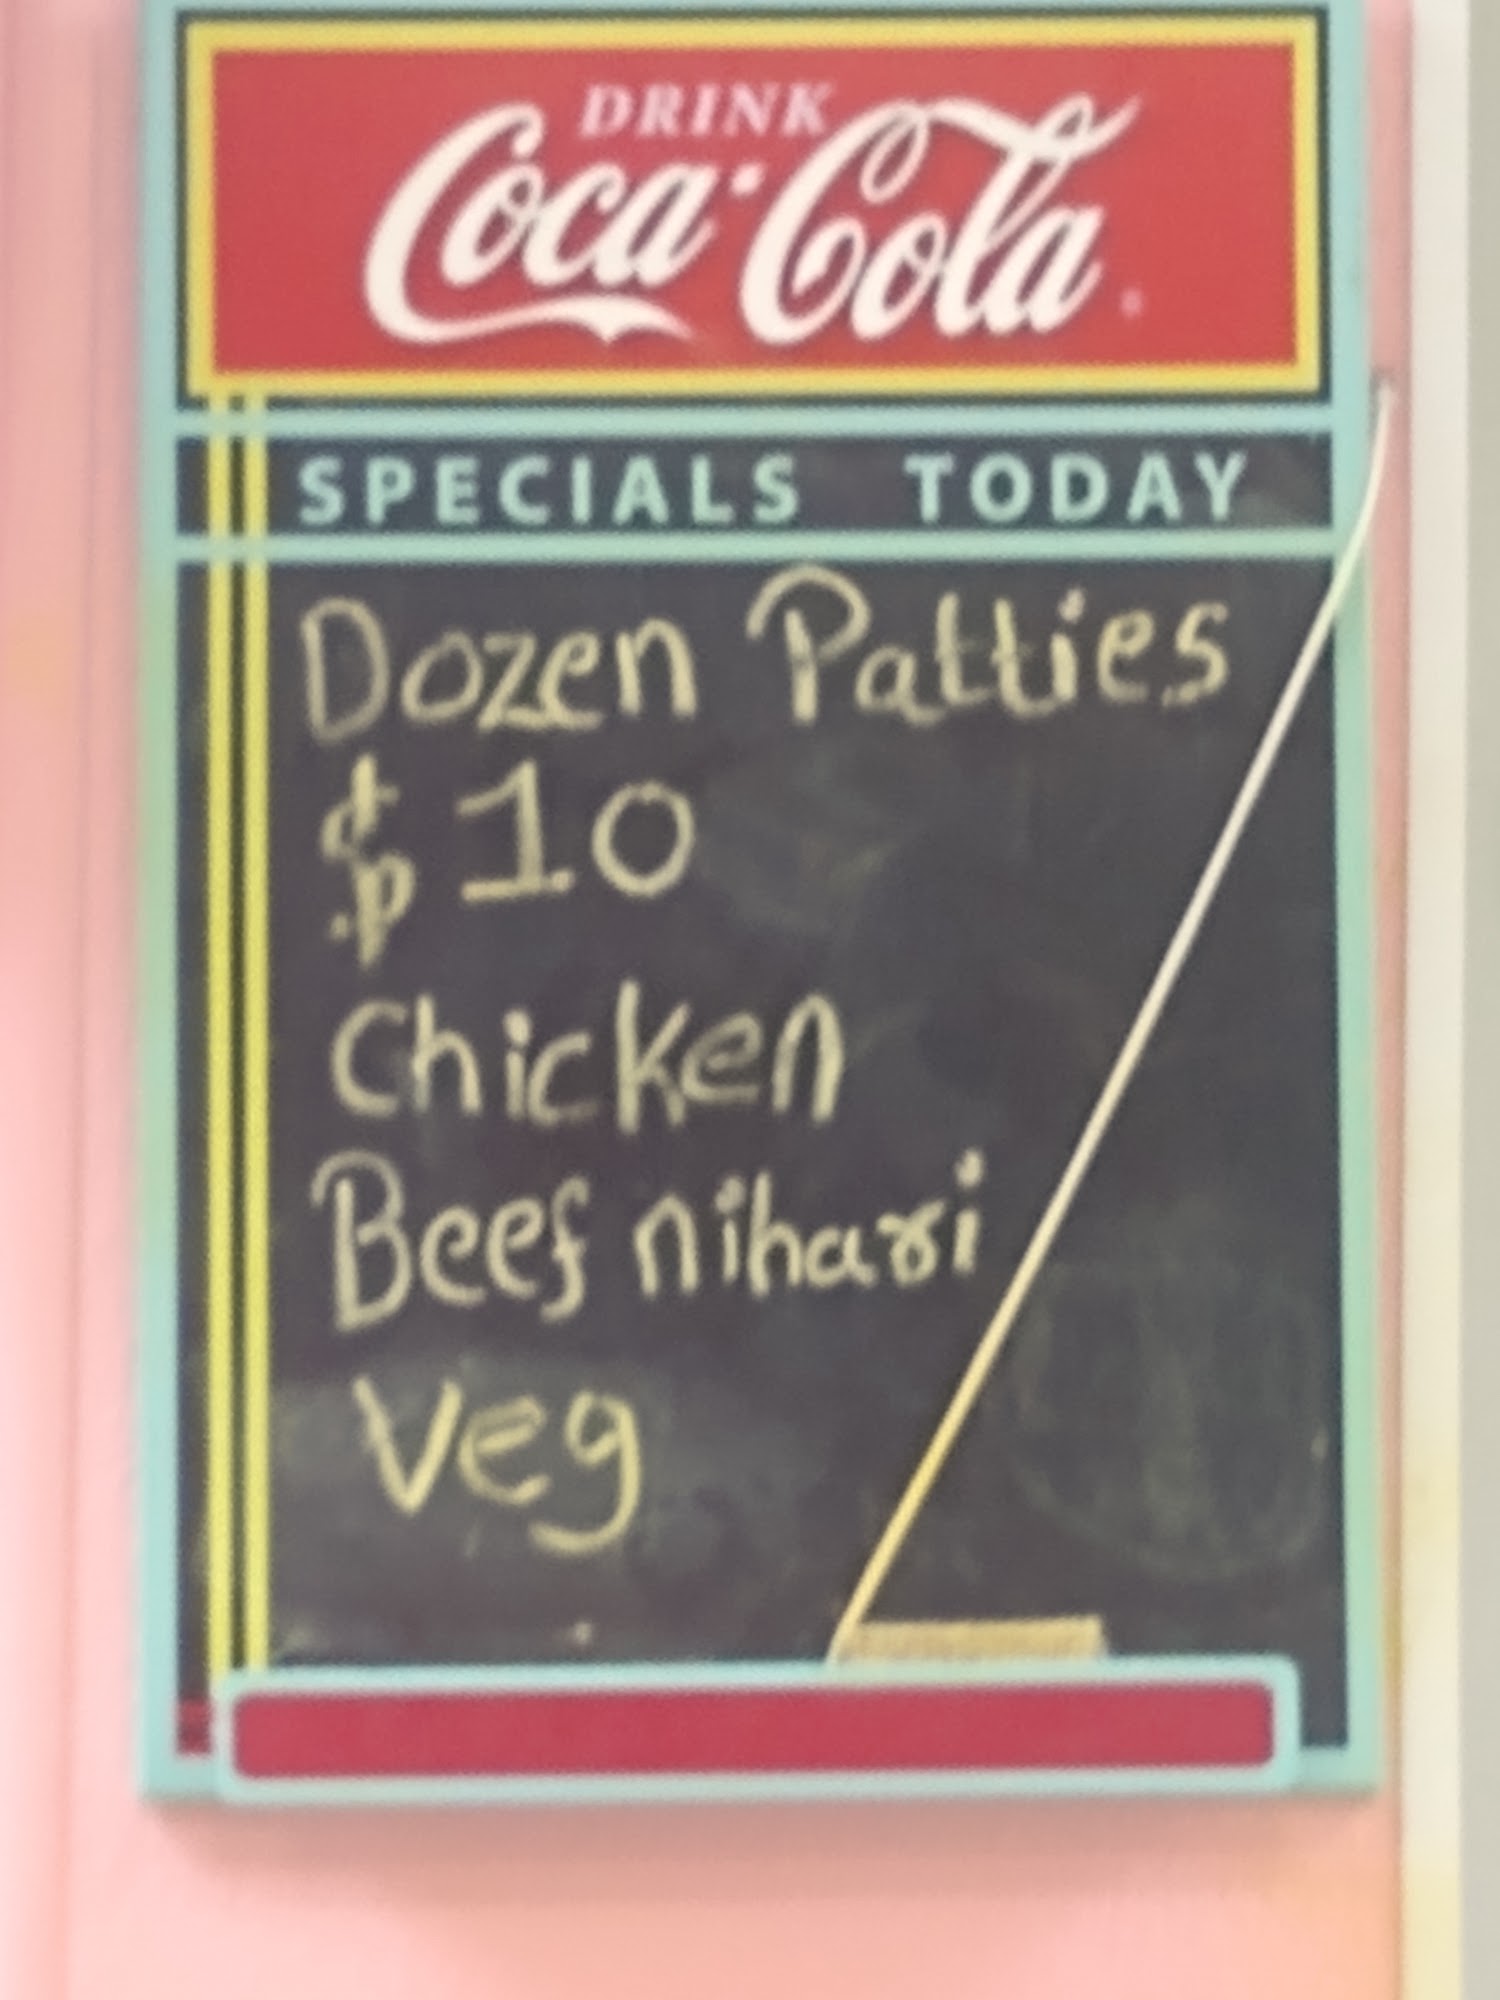 DRINK
Coca-Cola
SPECIALS TODAY
Dozen Patties
$10
Chicken
Beef nihari
Veg